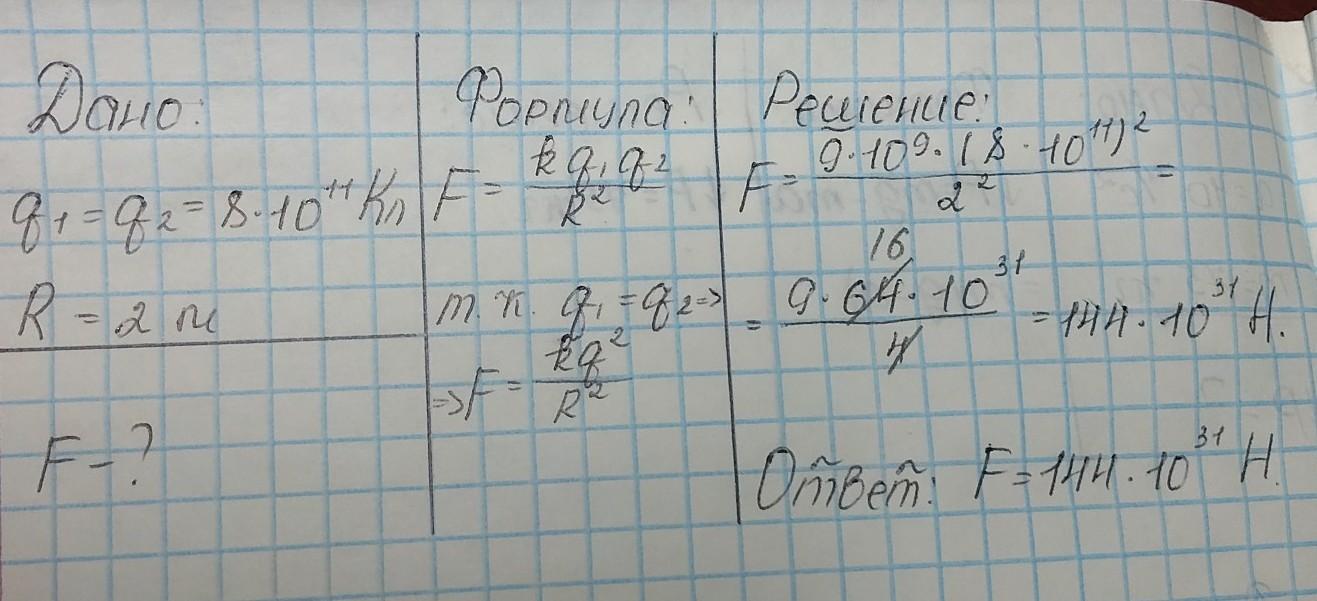 Дано:
q₁ = q₂ = 8·10¹¹ Кл
R = 2 м
F - ?
Формула:
F = kq₁q₂/R²
т.к. q₁ = q₂ =>
=> F = kq²/R²
Решение:
F = 9·10⁹·(8·10¹¹)²/2² =
16
= 9·64·10³¹/4 = 144·10³¹ Н.
Ответ: F = 144·10³¹ Н.